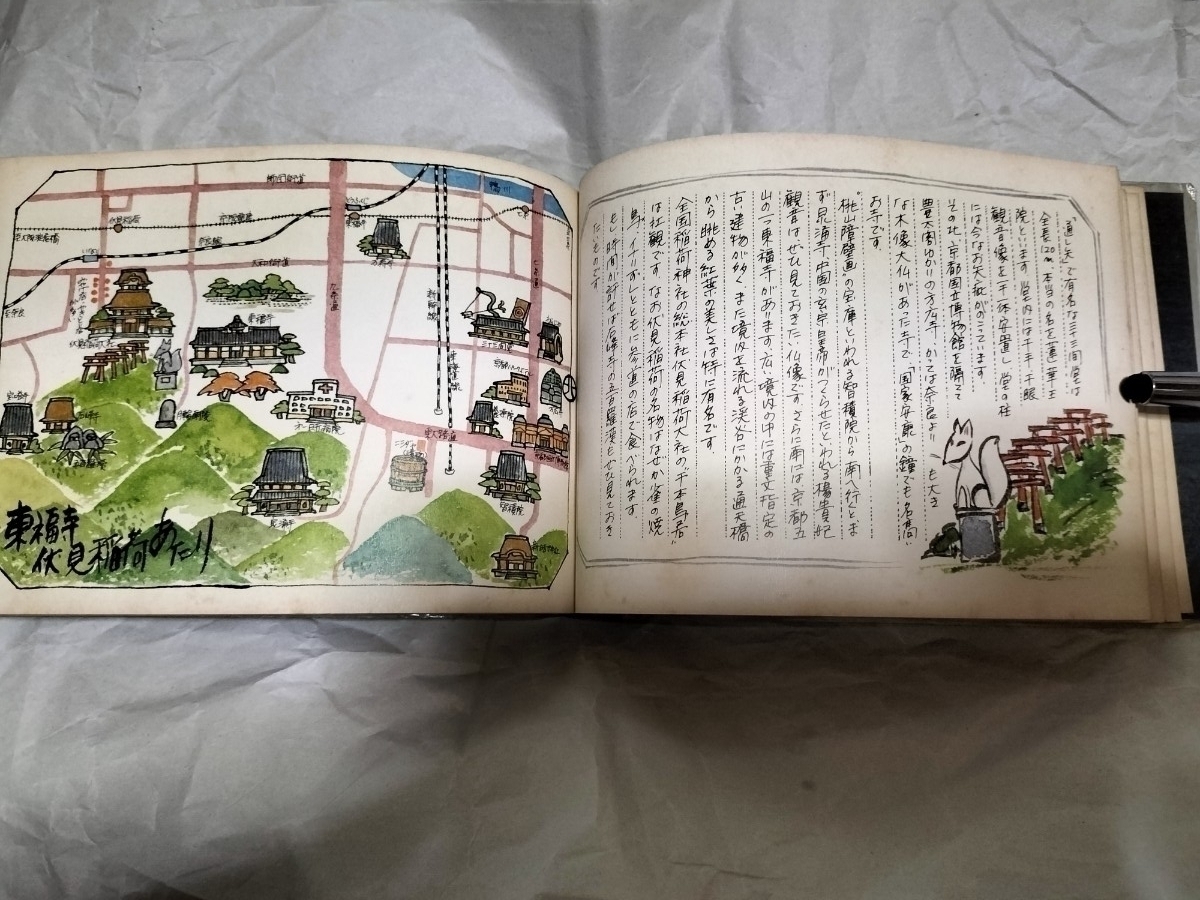 通し矢で有名な三十三間堂は
全長120m 本当の名を蓮華王
院といいます。堂内には千手千眼
観音像を千一体安置し 堂の柱
には今なお矢疵がのこっています。
その北 京都国立博物館を隔てて
豊太閤ゆかりの方広寺。かつては奈良よりも大き
な木像大仏があった寺で「国家安康」の鐘でも名高い
お寺です。
"桃山障壁画"の宝庫といわれる智積院から南へ行くとま
ず泉涌寺 中国の玄宗皇帝がつくらせたといわれる楊貴妃
観音はぜひ見ておきたい仏像です。さらに南には京都五
山の一つ東福寺があります。広い境内の中には重文指定の
古い建物が多く また境内を流れる渓谷にかかる通天橋
から眺める紅葉の美しさは特に有名です。
全国稲荷神社の総本社 伏見稲荷大社の"千本鳥居"
は壮観です。なお伏見稲荷の名物はなぜか雀の焼
鳥。イナリずしとともに参道の店で食べられます。
もし時間が許せば石峰寺の五百羅漢もぜひ見ておき
たいものです。
鴨川
大和街道
東福寺
三十三間堂
東大路通
泉涌寺
東福寺
伏見稲荷あたり